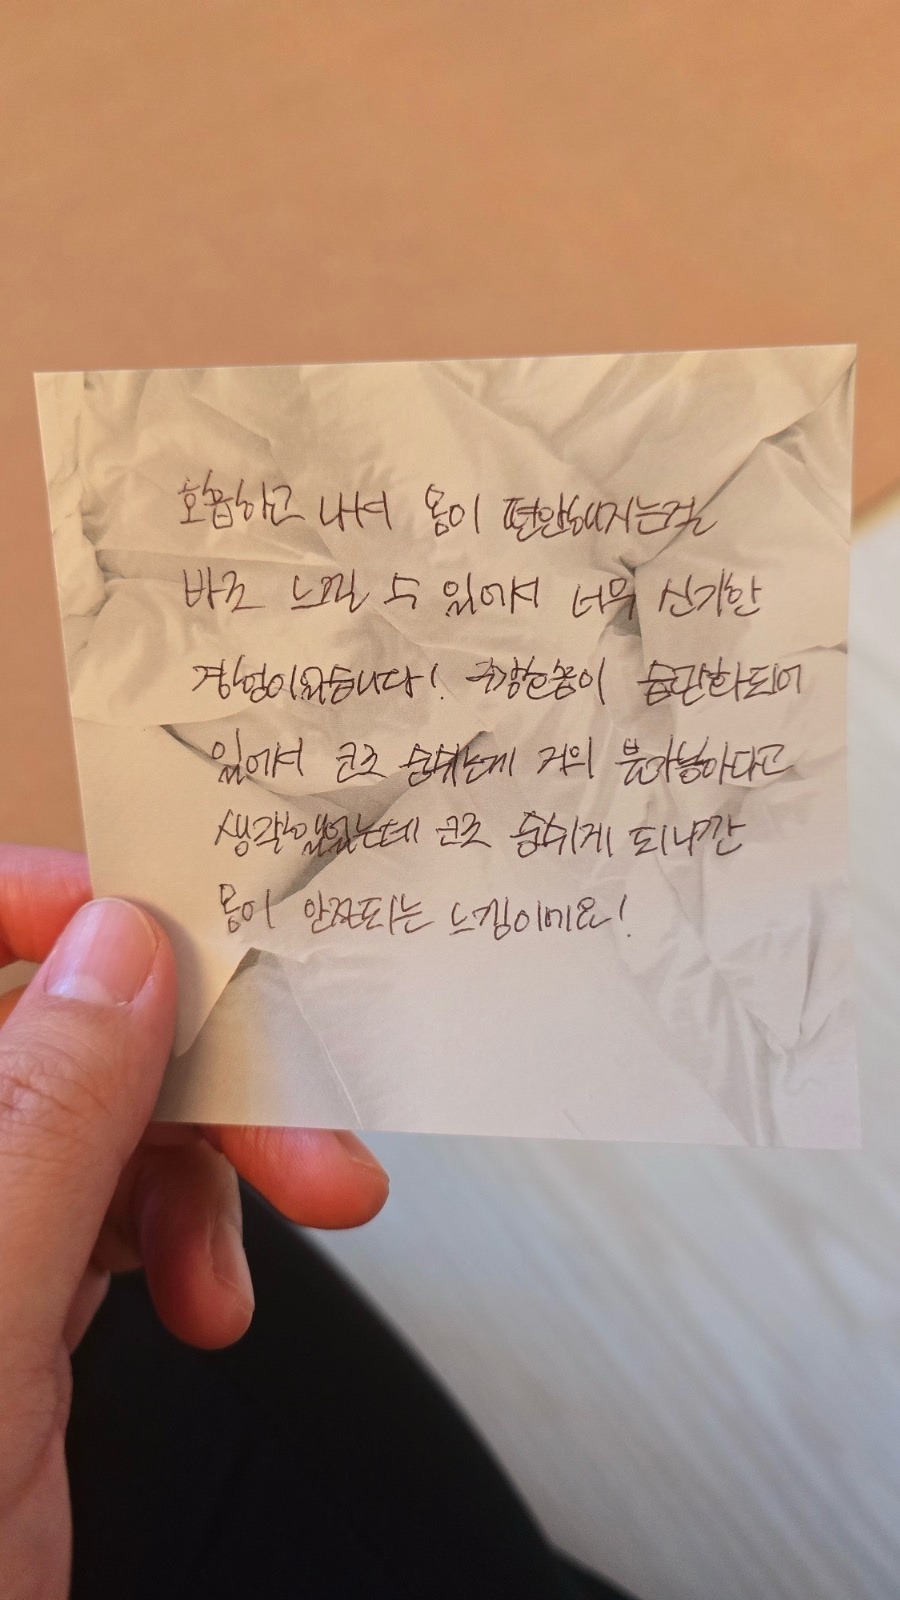 호흡하고 나서 몸이 편안해지는걸
바로 느낄 수 있어서 너무 신기한
경험이었습니다! 구강호흡이 습관화되어
있어서 코로 숨쉬는게 거의 불가능하다고
생각했었는데 코로 숨쉬게 되니깐
몸이 안정되는 느낌이에요!